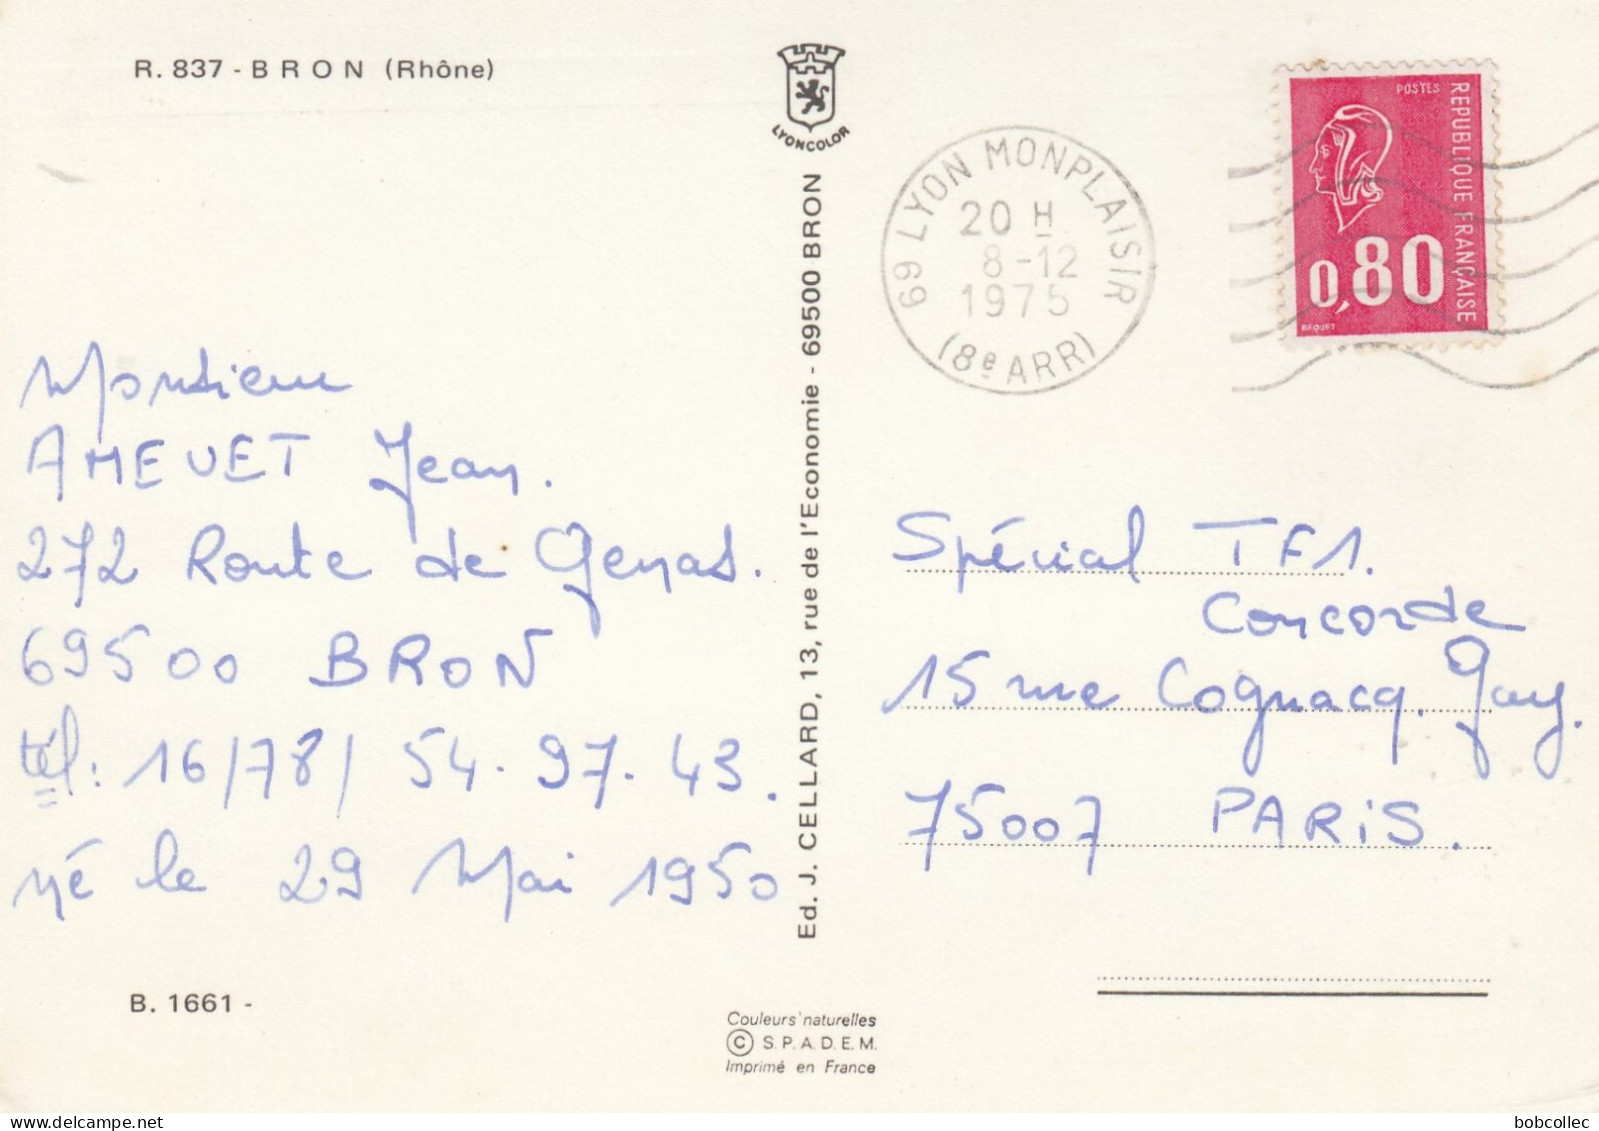 R. 837 - BRON (Rhône)
LYONCOLOR
69 LYON MONPLAISIR
20 H
8-12
1975
(8e ARR)
POSTES
REPUBLIQUE FRANÇAISE
0,80
BEQUET
Monsieur
AMEVET Jean.
272 Route de Genas.
69500 BRON
tél: 16/78/ 54.97.43.
né le 29 Mai 1950
B. 1661 -
Ed. J. CELLARD, 13, rue de l'Economie - 69500 BRON
Couleurs naturelles
© S.P.A.D.E.M.
Imprimé en France
Spécial TF1.
Concorde
15 rue Cognacq. Jay.
75007 PARIS.
bobcollec